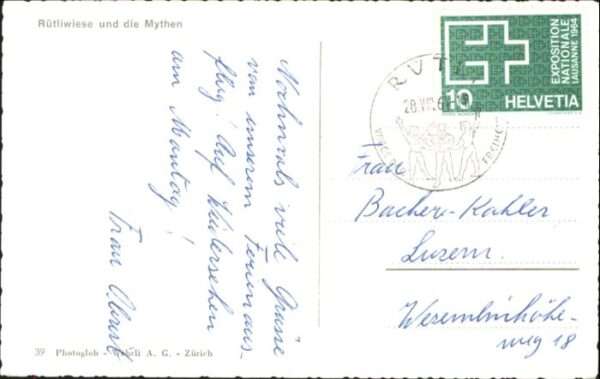 Rütliwiese und die Mythen
Nochmals viele Grüsse
von unserem Ferienaus-
flug! Auf Wiedersehen
am Montag!
Frau
39 Photoglob - A. G. - Zürich
EXPOSITION
NATIONALE
LAUSANNE 1964
10 HELVETIA
Frau
Bacher-Kohler
Luzern
höhe-
weg 18